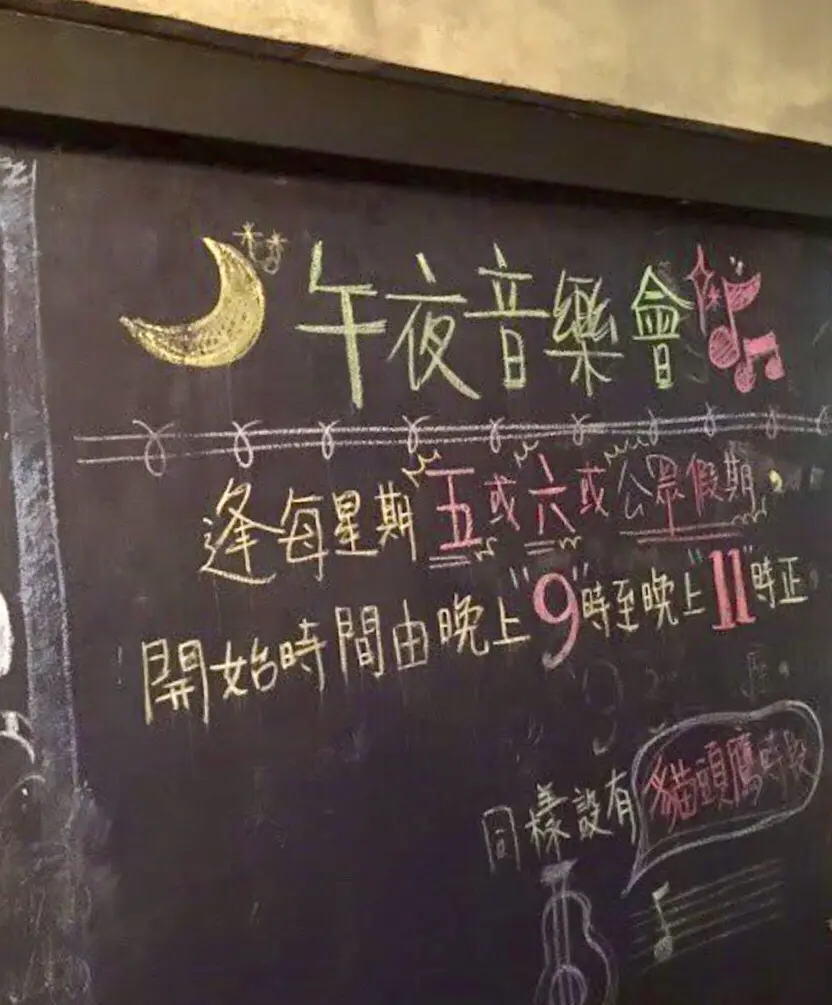 午夜音樂會
逢每星期五或六或公眾假期，
開始時間由晚上"9"時至晚上"11"時正
同樣設有貓頭鷹時段